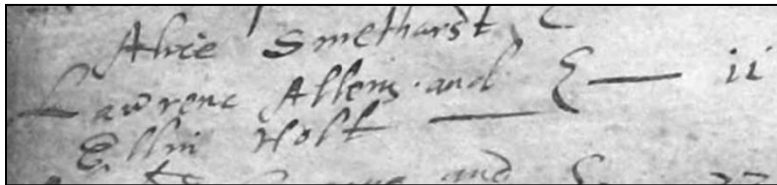 Alice Smetharst
Lawrenc Allens and ii
Ellin Holt
and